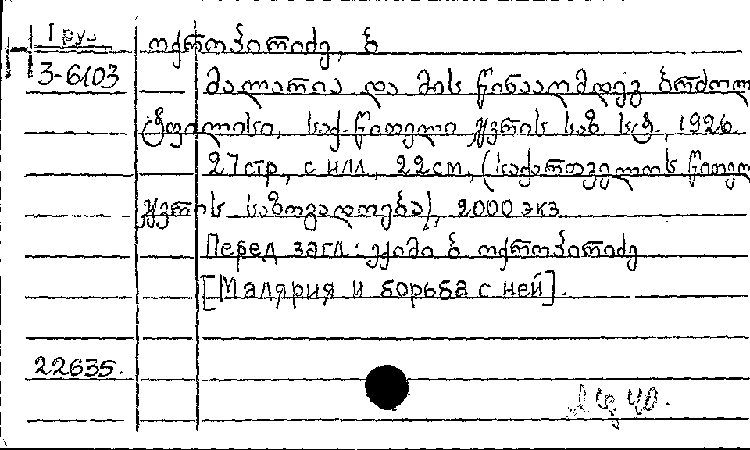 Груз
3-6103
ოქროპირიძე, ნ
მალარია და მის წინააღმდეგ ბრძოლ
ტფილისი, საქ. წითელი ჯვრის საზ. სტ., 1926
27 стр., с илл., 22 см, (საქართველოს წითელ
ჯვრის საზოგადოება), 2000 экз
Перед загл.: ექიმი ნ. ოქროპირიძე
[Малярия и борьба с ней].
22635.